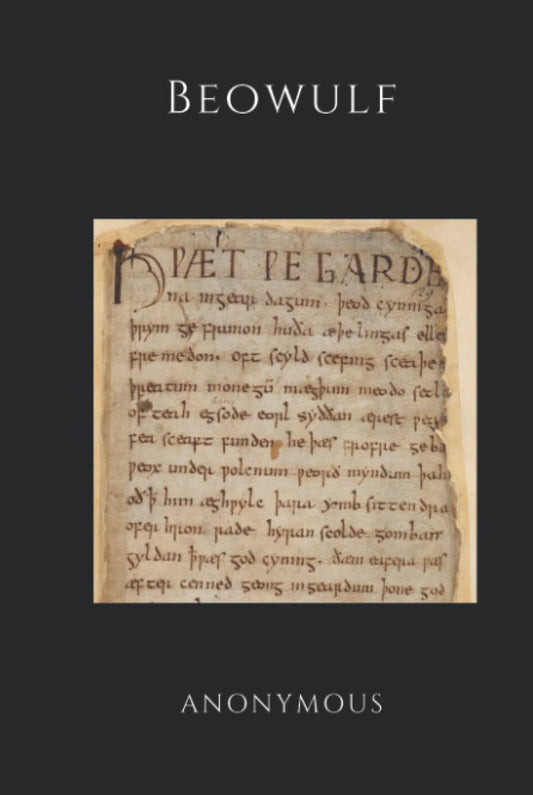 BEOWULF
HǷÆT ǷE GARDE
na ingear dagum. þeod cyninga
þrym ge frunon huða æþelingas elle
fre medon. oft scyld scefing sceaþe
þreatum monegū mægþum meodo setl
of teah egsode eorl syððan ærest
fea sceaft funden he þæs frofre geba
ƿeox under ƿolcnum ƿeorð myndum þah
oð ꝥ him æghƿylc þara ymb sittendra
ofer hron rade hyran scolde gomban
gyldan ꝥ ƿæs god cyning. ðæm eafera ƿæs
æfter cenned geong ingeardum þone god
ANONYMOUS